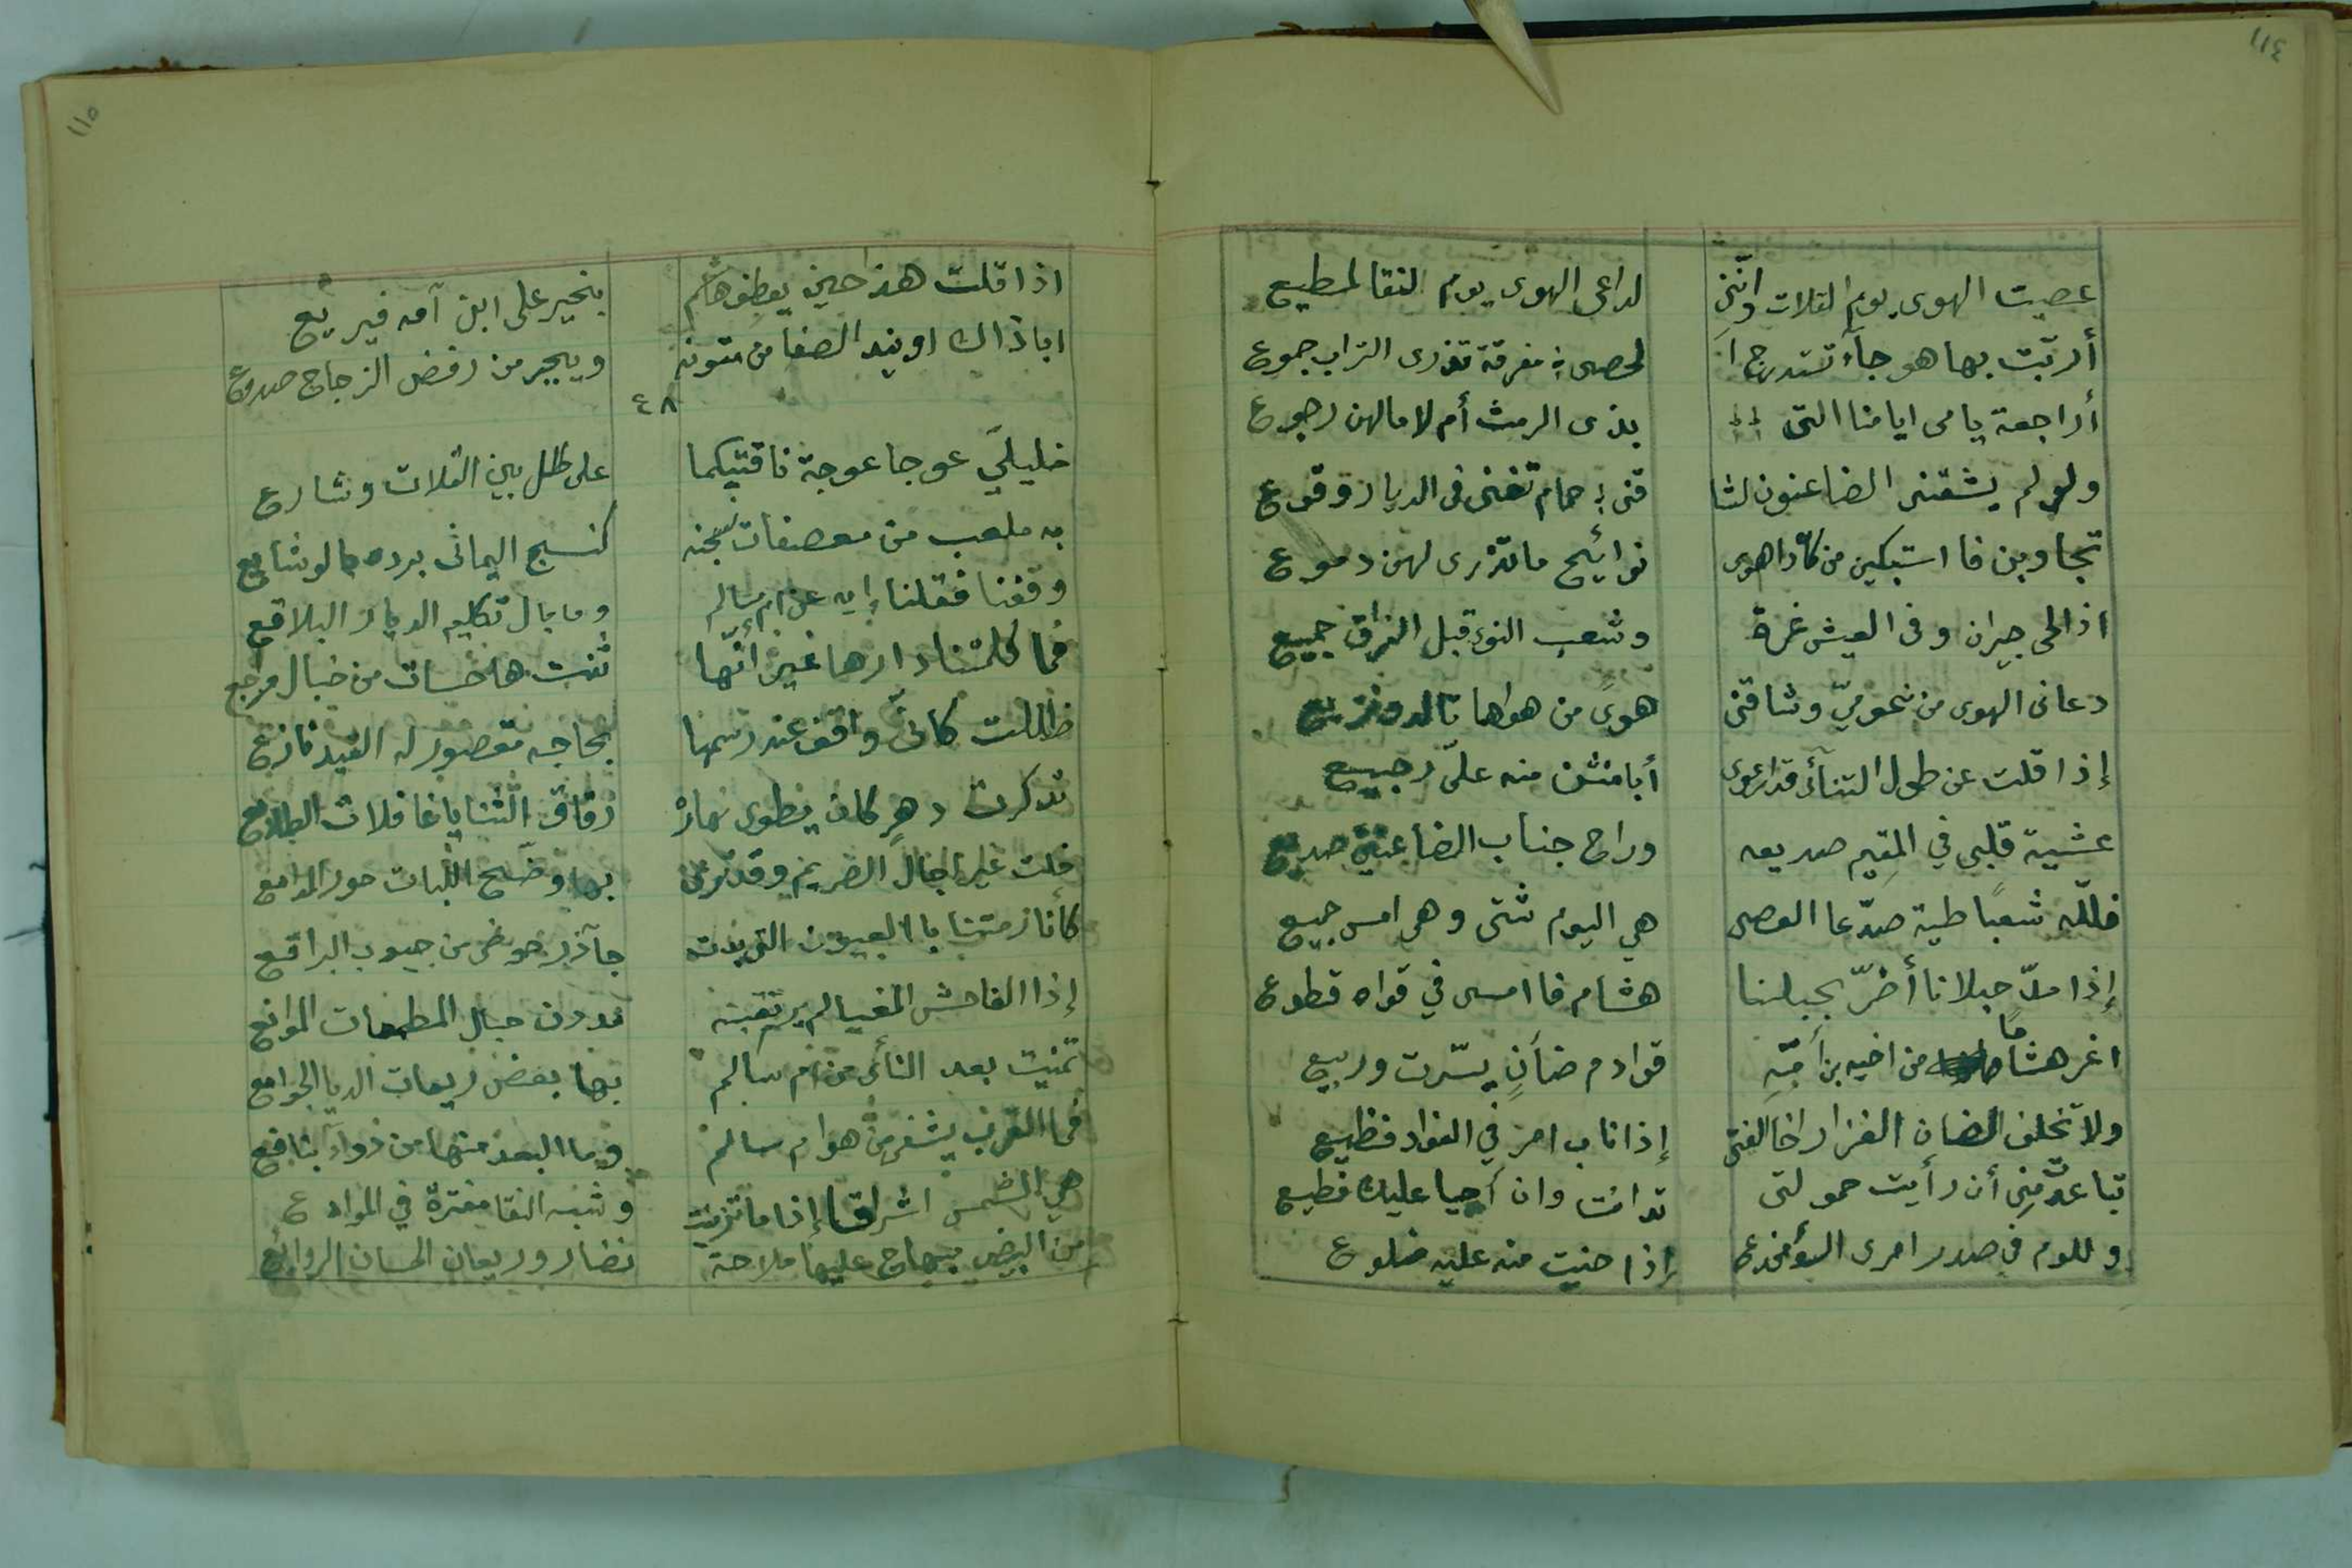 ١١٤
عصيت الهوى يوم القلات وانني لداعى الهوى يوم النقا لمطيع
أربّت بها هوجآء تستدرج ا لحصى مفرقة تذرى التراب جموع
أراجعة يامى ايامنا التى بذى الرمث أم لا مالهن رجوع
ولو لم يشقنى الضاعنون لشا قنى حمام تغنى فى الديار وقوع
تجاوبن فا استبكين من كان ذاهوى نوائح ماتذرى لهن دموع
اذ الحى جيران وفى العيش غرة وشعب النوى قبل الفراق جميع
دعانى الهوى من نحو ميّ وشاقنى هوىً من هواها تالد ونزيع
إذا قلت عن طول التنآئى قد ارعوى أبا منثن منه علىّ رجيع
عشية قلبى في المقيم صديعه وراح جناب الضاعنين صديع
فللّه شعبًا طية صدّعا العصى هي اليوم شتى وهي امس جميع
إذا مدّ حبلانا أضرّ بحبلنا هشام فا امسى في قواه قطوع
اغر هشامًا من اخيه بن أمّهِ قوادم ضأنٍ يسّرت وربيع
ولا تخلف الضان الغزار اخا الفتى إذا ناب امر في الفواد فظيع
تباعدت مني أن رأيت حمولتى تدانت وان أحيا عليك قطيع
وللوم في صدر امرى السؤ مخدع إذا حنيت منه عليه ضلوع
١١٥
اذا قلت هذا حين يعطف هاشم بخير على ابن آمه فيريّع
ابا ذاك او يندى الصفا من متونه ويجبر من رفض الزجاج صدوع
٤٨
خليليَ عوجا عوجة ناقتيكما على طلل بين القلات وشارع
به ملعب من معصفات نسجنه كنسج اليمانى برده بالوشايع
وقفنا فقلنا إيه عن ام سالم وما بال تكليم الديار البلاقع
فما كلمتنا دارها غير أنّها ثنت هاحسات من خبال مراجع
ظللت كانى واقف عند رسمها بحاجه مقصور له القيد نازع
تذكرت دهرٍ كان يطوى نهارهُ رقاق الثنايا غافلات الطلايع
خلت غير اجال الصريم وقد ترى بها وضّح اللبات حور المدامع
كأنا رمتنا با العيون التى بدت جآذر حوضى من جيوب البراقع
إذا الفاحش المغيا لم يرتقبنه مددن حبال المطمعات الموانع
تمنيت بعد النأى من ام سالم بها بعض ريعات الديا الجوامع
فما القرب يشفى من هوا م سالم وما البعد منها من دوآء بنافع
هي الشمس اشراقا إذا ماتزينت وشبه النقا مغترة في الموادع
من البيض مبهاج عليها ملاحة نضار وريعان الحسان الروايع